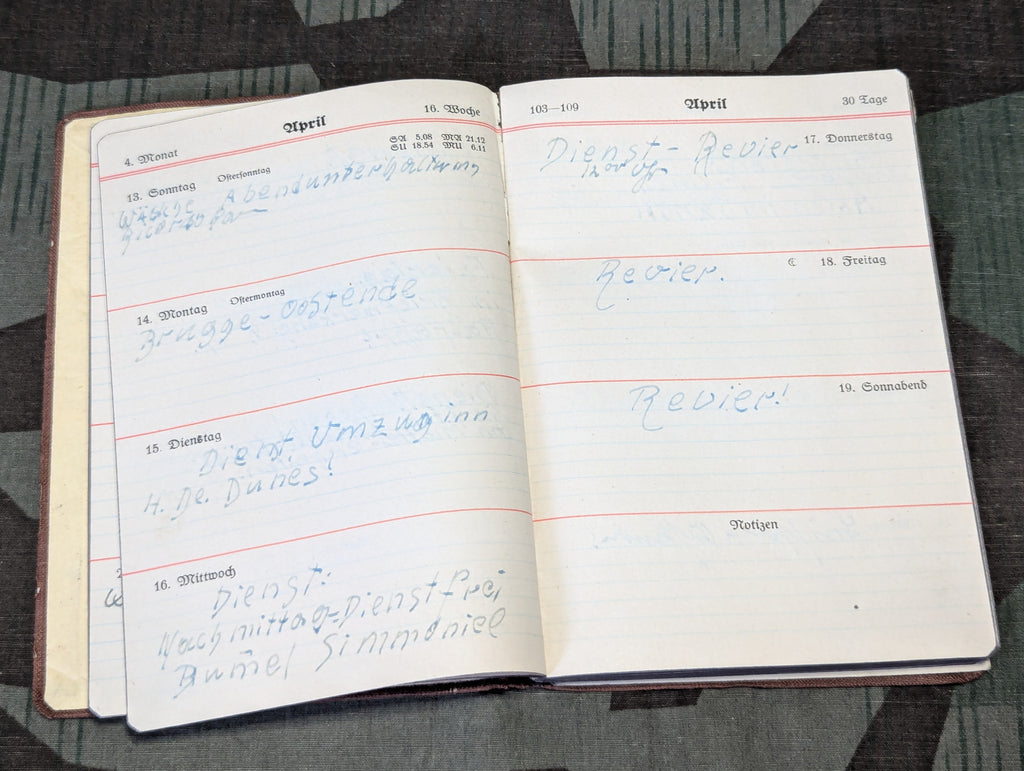 April
16. Woche
4. Monat
SA 5.08 MA 21.12
SU 18.54 MU 6.11
13. Sonntag
Ostersonntag
Wäsche Abendunterhaltung
14. Montag
Ostermontag
Brügge-Oostende
15. Dienstag
Dienst, Umzug inn
H. De. Dunes!
16. Mittwoch
Dienst:
Nachmittag=Dienstfrei
Bum̄el
103—109
April
30 Tage
17. Donnerstag
Dienst-Revier
12 00 Uhr
☾ 18. Freitag
Revier.
19. Sonnabend
Revier!
Notizen